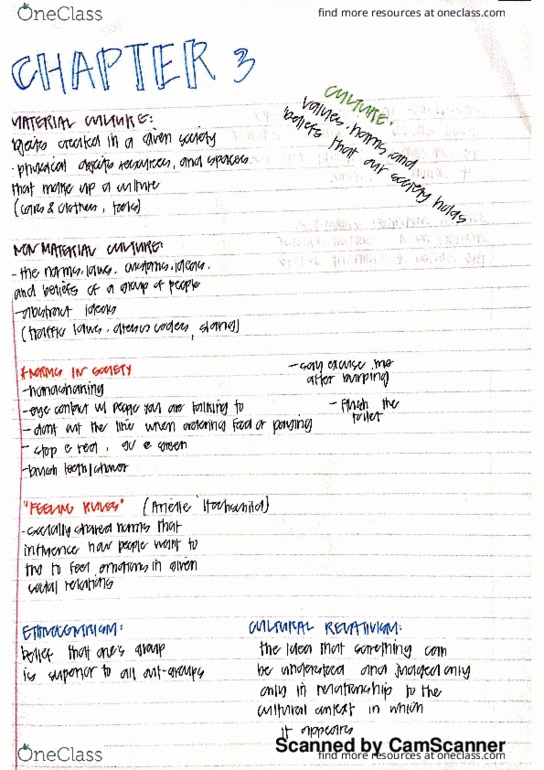 OneClass
find more resources at oneclass.com
CHAPTER 3
CULTURE:
values, norms, and
beliefs that our society holds
MATERIAL CULTURE:
objects created in a given society
- physical objects resources, and spaces
that make up a culture
(cars & clothes, tools)
NON MATERIAL CULTURE:
- the norms, laws, customs, ideas,
and beliefs of a group of people
- abstract ideas
(traffic laws, dress codes, slang)
*NORMS IN SOCIETY
- handshaking
- eye contact w/ people you are talking to
- dont cut the line when ordering food or paying
- stop @ red, go @ green
- brush teeth/shower
- say excuse me
after burping
- flush the
toilet
"FEELING RULES" (Arielle Hochschild)
- socially shared norms that
influence how people want to
try to feel emotions in given
social relations
ETHNOCENTRISM:
belief that one's group
is superior to all out-groups
CULTURAL RELATIVISM:
the idea that something can
be understood and judged only
only in relationship to the
cultural context in which
it appears
Scanned by CamScanner
OneClass
find more resources at oneclass.com